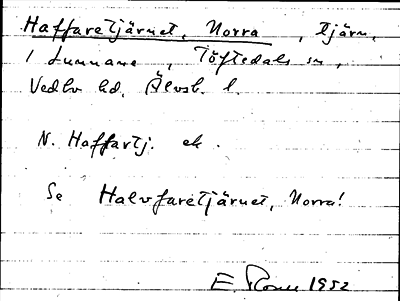 Haffaretjärnet, Norra, tjärn,
i Lunnane, Töftedals sn,
Vedbo hd, Älvsb. l.
N. Haffartj. ek.
Se Halvfaretjärnet, Norra!
E. 1952